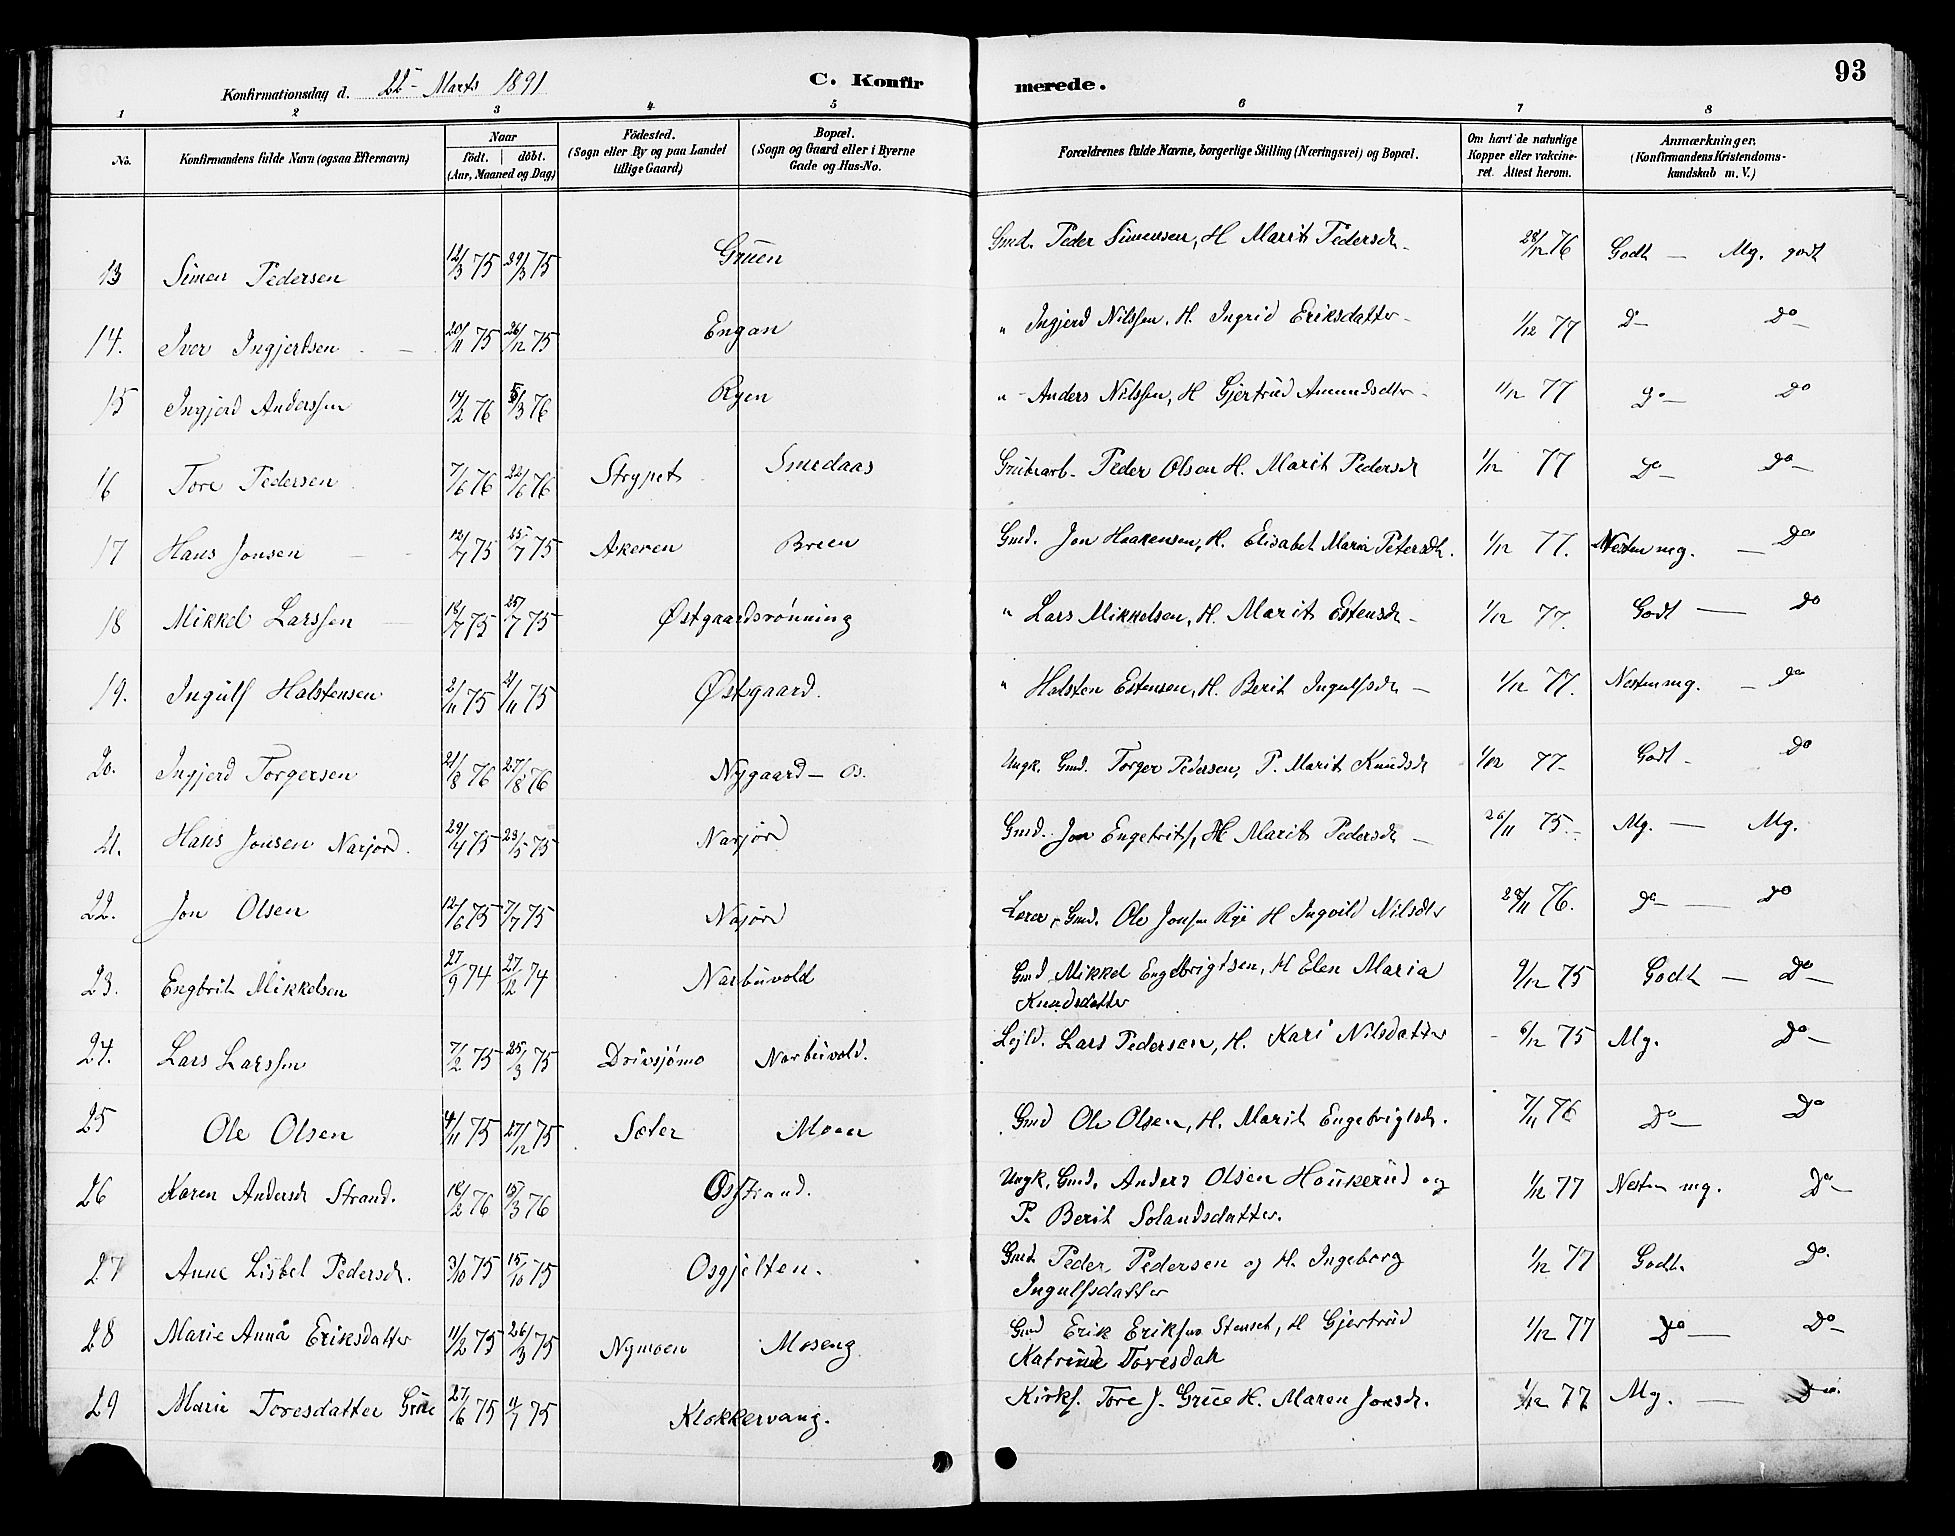 93
Konfirmationsdag d. 22- Marts 1891 C. Konfir merede.
1 2 3 4 5 6 7 8
No. Konfirmandens fulde Navn (ogsaa Efternavn) Naar födt. döbt. (Aar, Maaned og Dag) Födested. (Sogn eller By og paa Landet tillige Gaard) Bopæl. (Sogn og Gaard eller i Byerne Gade og Hus-No. Forældrenes fulde Navne, borgerlige Stilling (Næringsvei) og Bopæl. Om havt de naturlige Kopper eller vakcineret. Attest herom. Anmærkninger. (Konfirmandens Kristendomskundskab m. V.)
13 Simen Pedersen 12/3 75 29/3 75 Gruen Gmd. Peder Simensen, H Marit Pedersdr - 28/12 76 Godt — Mg. godt
14. Iver Ingjertsen 20/11 75 26/12 75 Engan " Ingjerd Nilssen, H. Ingrid Eriksdatter - 1/12 77 Do Do
15 Ingjerd Anderssen 14/2 76 5/3 76 Ryen " Anders Nilssen, H Gjertrud Amundsdtr - 11/12 77 Do Do
16 Tore Pedersen 7/6 76 22/6 76 Strypet Smedaas Grubearb. Peder Olsen H. Marit Pedersdr 1/12 77 Do Do
17 Hans Jonsen 12/7 75 25/7 75 Akeren Breen Gmd. Jon Haakensen, H. Elisabet Maria Petersdtr. 1/12 77. Nesten mg. — Do
18 Mikkel Larssen 18/7 75 25/7 75 Østgaardsrønning " Lars Mikkelsen, H. Marit Estensdr - 1/12 77. Godt — Do
19. Ingulf Halstensen 2/11 75 21/11 75 Østgaard. " Halsten Estensen, H. Berit Ingulfsdr - 1/12 77. Nesten mg. - Do
20. Ingjerd Torgersen 21/8 76 27/8 76 Nygaard - Os. Ungk. Gmd. Torger Pedersen, P. Marit Knudsdr 1/12 77- Godt - Do
21. Hans Jonsen Narjord. 29/4 75 23/5 75 Narjord Gmd. Jon Engebrits, H Marit Pedersdr - 26/11 75.- Mg. — Mg.
22. Jon Olsen 12/6 75 7/7 75 Najord Lærer, Gmd. Ole Jonsen Rye H Ingvild Nilsdtr 28/11 76. Do — Do
23. Engbrit Mikkelsen 27/9 74 27/12 74 Narbuvold Gmd Mikkel Engelbrigtsen, H Elen Maria 9/12 75 Godt — Do
Knudsdatter
24. Lars Larssen 7/2 75 25/3 75 Drivsjømo Narbuvold. Lejld. Lars Pedersen, H. Kari Nilsdatter 6/12 75 Mg. Do
25 Ole Olsen 4/11 75 27/12 75 Sæter Moen Gmd Ole Olsen, H. Marit Engebrigtsdr. 7/11 76 Do Do
26 Karen Andersdr Strand. 18/2 76 15/3 76 Osstrand. Ungk. Gmd. Anders Olsen Houkerud og 1/12 77 Nesten mg. Do
P. Berit Solandsdatter.
27 Anne Lisbet Pedersdr. 3/10 75 15/10 75 Osgjelten. Gmd. Peder Pedersen og H. Ingeborg 1/12 77 Godt. Do.
Ingulfsdatter
28 Marie Anna Eriksdatter 11/2 75 26/3 75 Nymoen Moseng Gmd Erik Eriksen Stenset, H Gjertrud 1/12 77 Do — Do
Katrine Toresdatr
29 Marie Toresdatter Grue 27/6 75 11/7 75 Klokkervang. Kirks. Tore J. Grue H. Maren Jonsdr. 1/12 77 Mg. — Do.